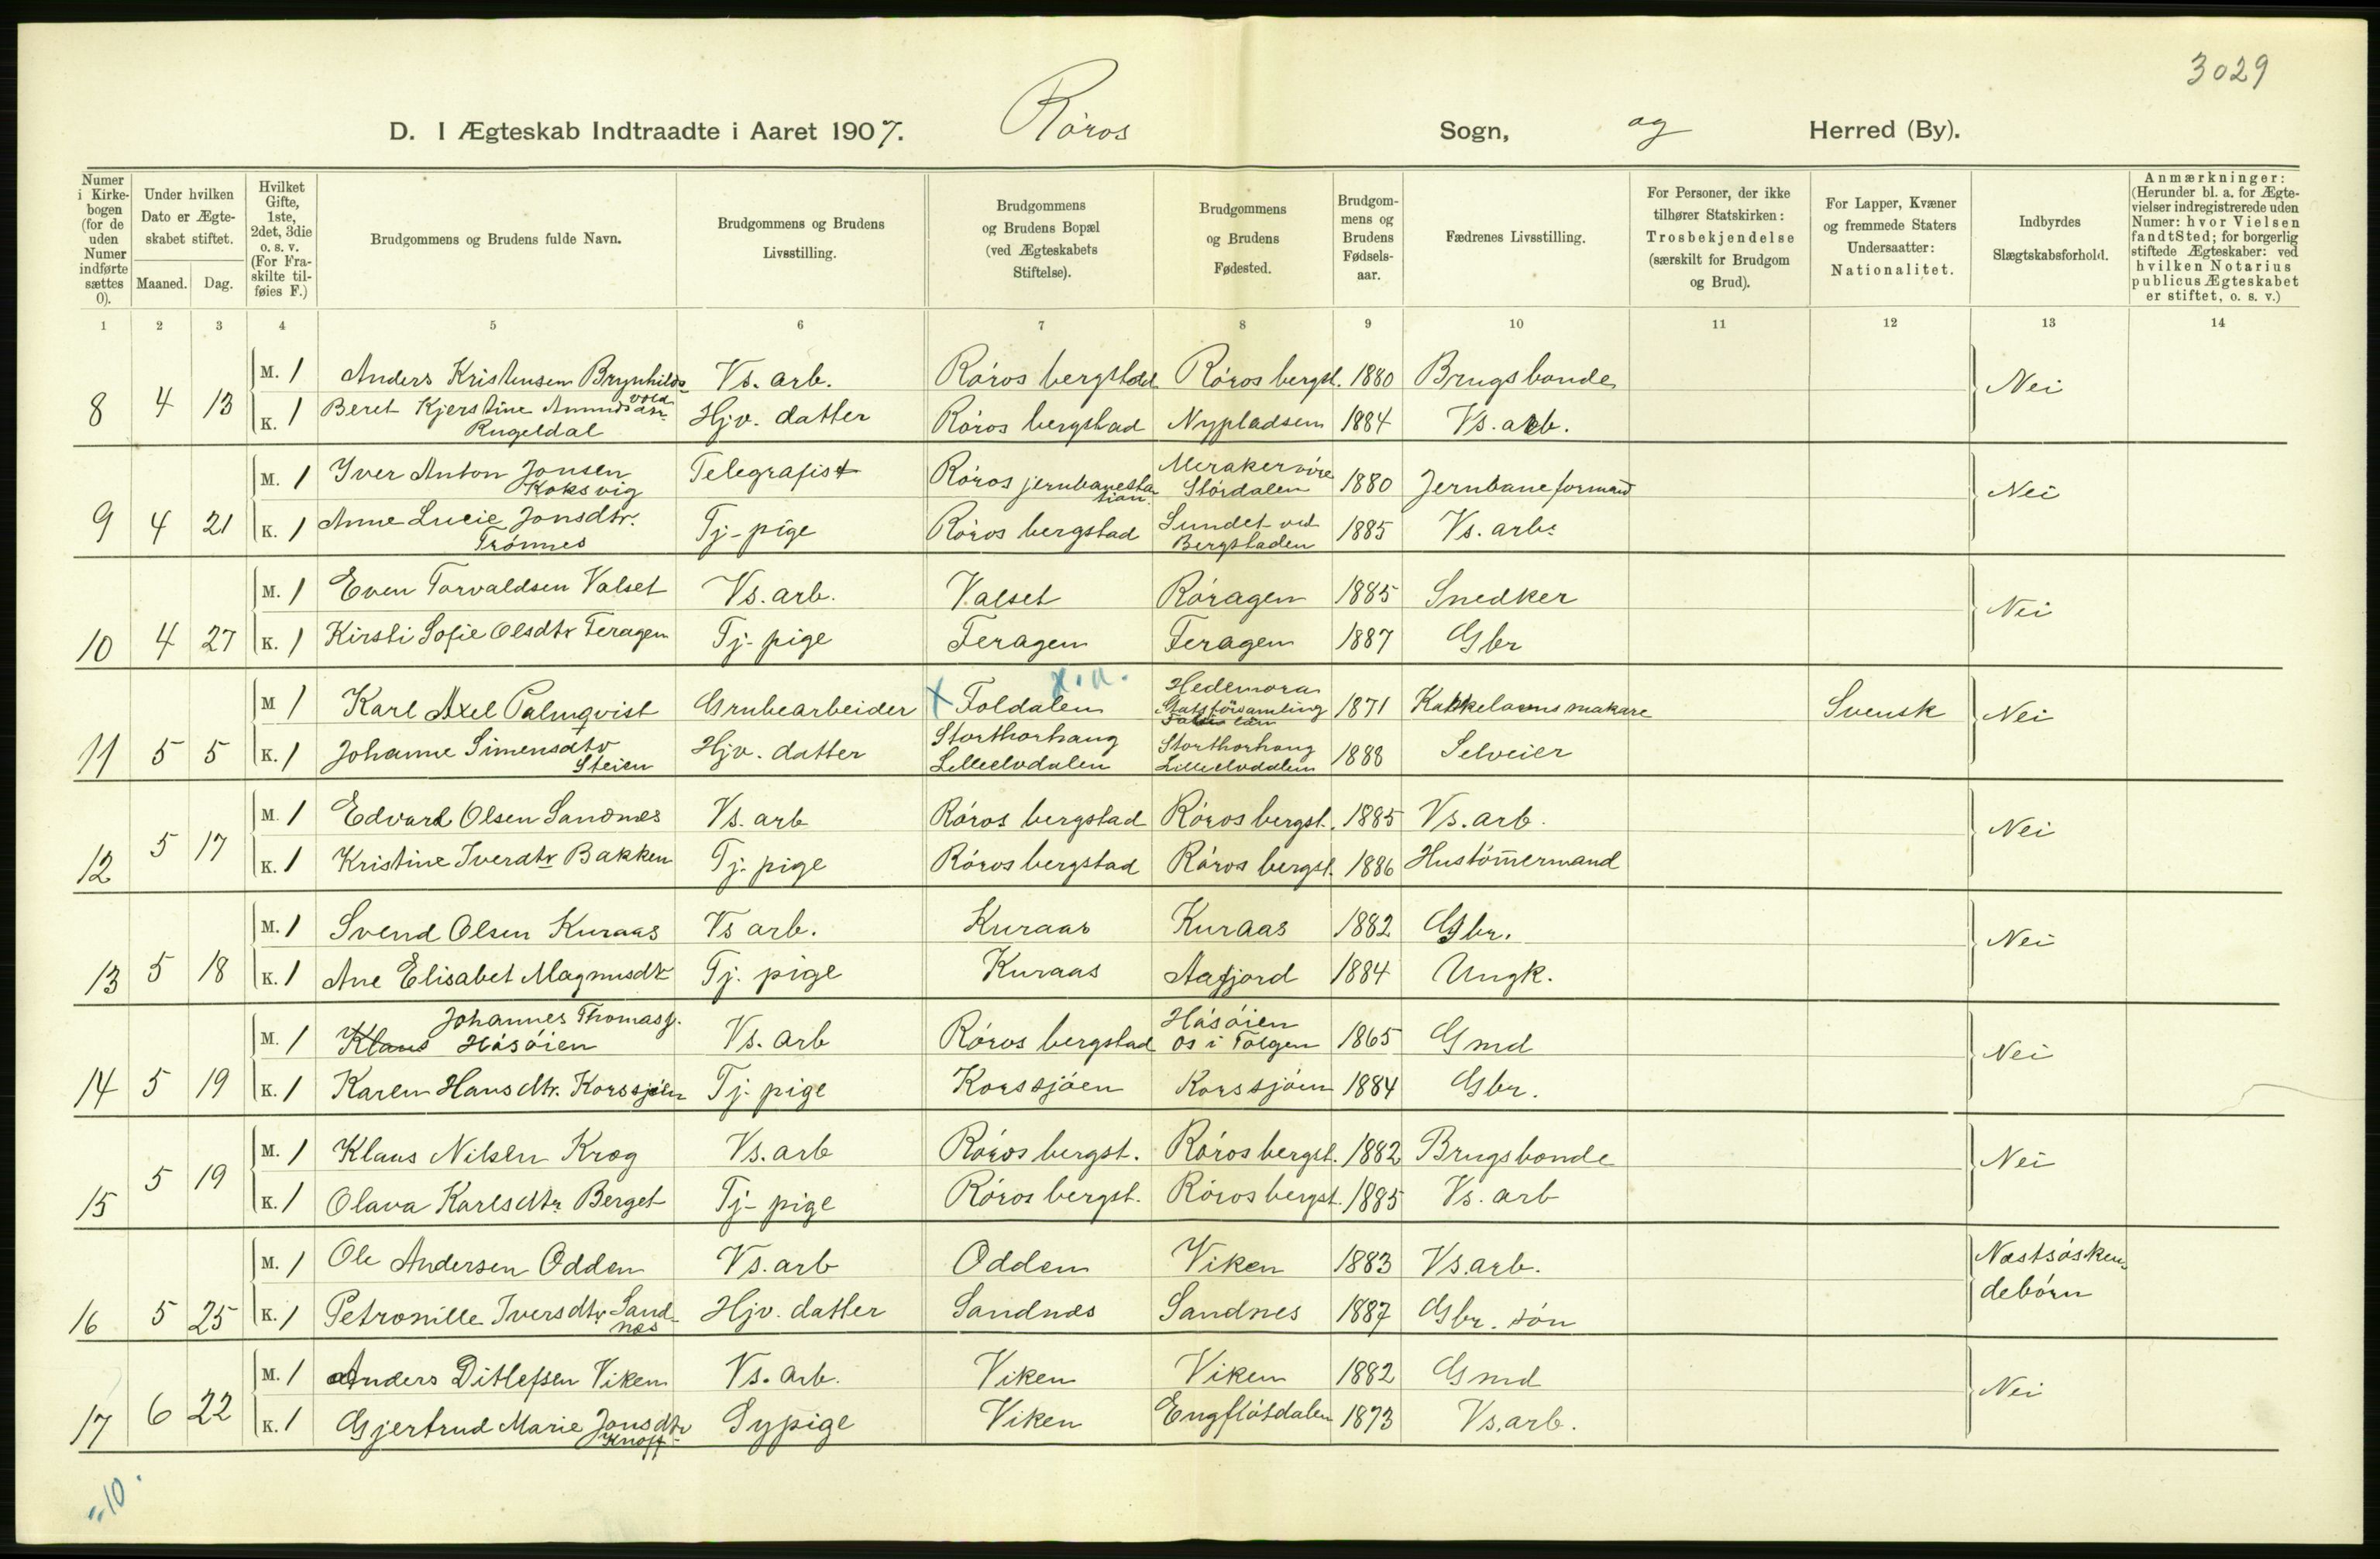 3029
D. I Ægteskab Indtraadte i Aaret 1907. Röros Sogn, og Herred (By).
Numer i Kirkebogen (for de uden Numer indførte sættes 0).
Under hvilken Dato er Ægteskabet stiftet.
Maaned. Dag.
Hvilket Gifte, 1ste, 2det, 3die o. s. v. (For Fraskilte tilføies F.)
Brudgommens og Brudens fulde Navn.
Brudgommens og Brudens Livsstilling.
Brudgommens og Brudens Bopæl (ved Ægteskabets Stiftelse).
Brudgommens og Brudens Fødested.
Brudgommens og Brudens Fødselsaar.
Fædrenes Livsstilling.
For Personer, der ikke tilhører Statskirken: Trosbekjendelse (særskilt for Brudgom og Brud).
For Lapper, Kvæner og fremmede Staters Undersaatter: Nationalitet.
Indbyrdes Slægtskabsforhold.
Anmærkninger: (Herunder bl. a. for Ægtevielser indregistrerede uden Numer: hvor Vielsen fandt Sted; for borgerlig stiftede Ægteskaber: ved hvilken Notarius publicus Ægteskabet er stiftet, o. s. v.)
1 2 3 4 5 6 7 8 9 10 11 12 13 14
8 4 13 M. 1 Anders Kristensen Brynhildsvold Vs. arb. Röros bergstad Röros bergst. 1880 Brugsbonde Nei
K. 1 Beret Kjerstine Amundsdtr. Rugeldal Hjv. datter Röros bergstad Nypladsen 1884 Vs. arb.
9 4 21 M. 1 Iver Anton Jonsen Koksvig Telegrafist Röros jernbanestation. Meraker övre Stördalen 1880 Jernbaneformand Nei
K. 1 Anne Lucie Jonsdtr. Trönnes Tj-pige Röros bergstad Sundet ved Bergstaden 1885 Vs. arb.
10 4 27 M. 1 Even Torvaldsen Valset Vs. arb. Valset Röragen 1885 Snedker Nei
K. 1 Kirsti Sofie Olsdtr Feragen Tj-pige Feragen Feragen 1887 Gbr
11 5 5 M 1 Karl Axel Palmqvist Grubearbeider X Foldalen Hedemora 1871 Kakkelovnsmakare Svensk Nei
K. 1 Johanne Simensdtr Steien Hjv. datter Storthorhaug Lilleelvdalen Storthorhaug Lilleelvdalen 1888 Selveier
12 5 17 M. 1 Edvard Olsen Sandnes Vs. arb Röros bergstad Röros bergst. 1885 Vs. arb. Nei
K. 1 Kristine Iversdtr Bakken Tj. pige Röros bergstad Röros bergst. 1886 Hustöm̄ermand
13 5 18 M. 1 Svend Olsen Kuraas Vs arb. Kuraas Kuraas 1882 Gbr. Nei
K. 1 Ane Elisabet Magnusdtr Tj. pige Kuraas Aafjord 1884 Ungk.
14 5 19 M. 1 Johannes Thomass. Klaus Håsöien Vs. arb Röros bergstad Håsöien Os i Tolgen 1865 Gmd Nei
K. 1 Karen Hansdtr. Korssjöen Tj-pige Korssjöen Korssjöen 1884 Gbr.
15 5 19 M. 1 Klaus Nilsen Krog Vs. arb Röros bergst. Röros bergst. 1882 Brugsbonde Nei
K. 1 Olava Karlsdtr Berget Tj-pige Röros bergst. Röros bergst. 1885 Vs. arb
16 5 25 M. 1 Ole Andersen Odden Vs. arb Odden Viken 1883 Vs. arb. Næstsöskendebörn
K. 1 Petronille Iversdtr Sandnes Hjv. datter Sandnes Sandnes 1887 Gbr. sön
17 6 22 M. 1 Anders Ditlefsen Viken Vs. arb. Viken Viken 1882 Gmd Nei
K. 1 Gjertrud Marie Jonsdtr Knoff Sypige Viken Engflötdalen 1873 Vs. arb.
10.